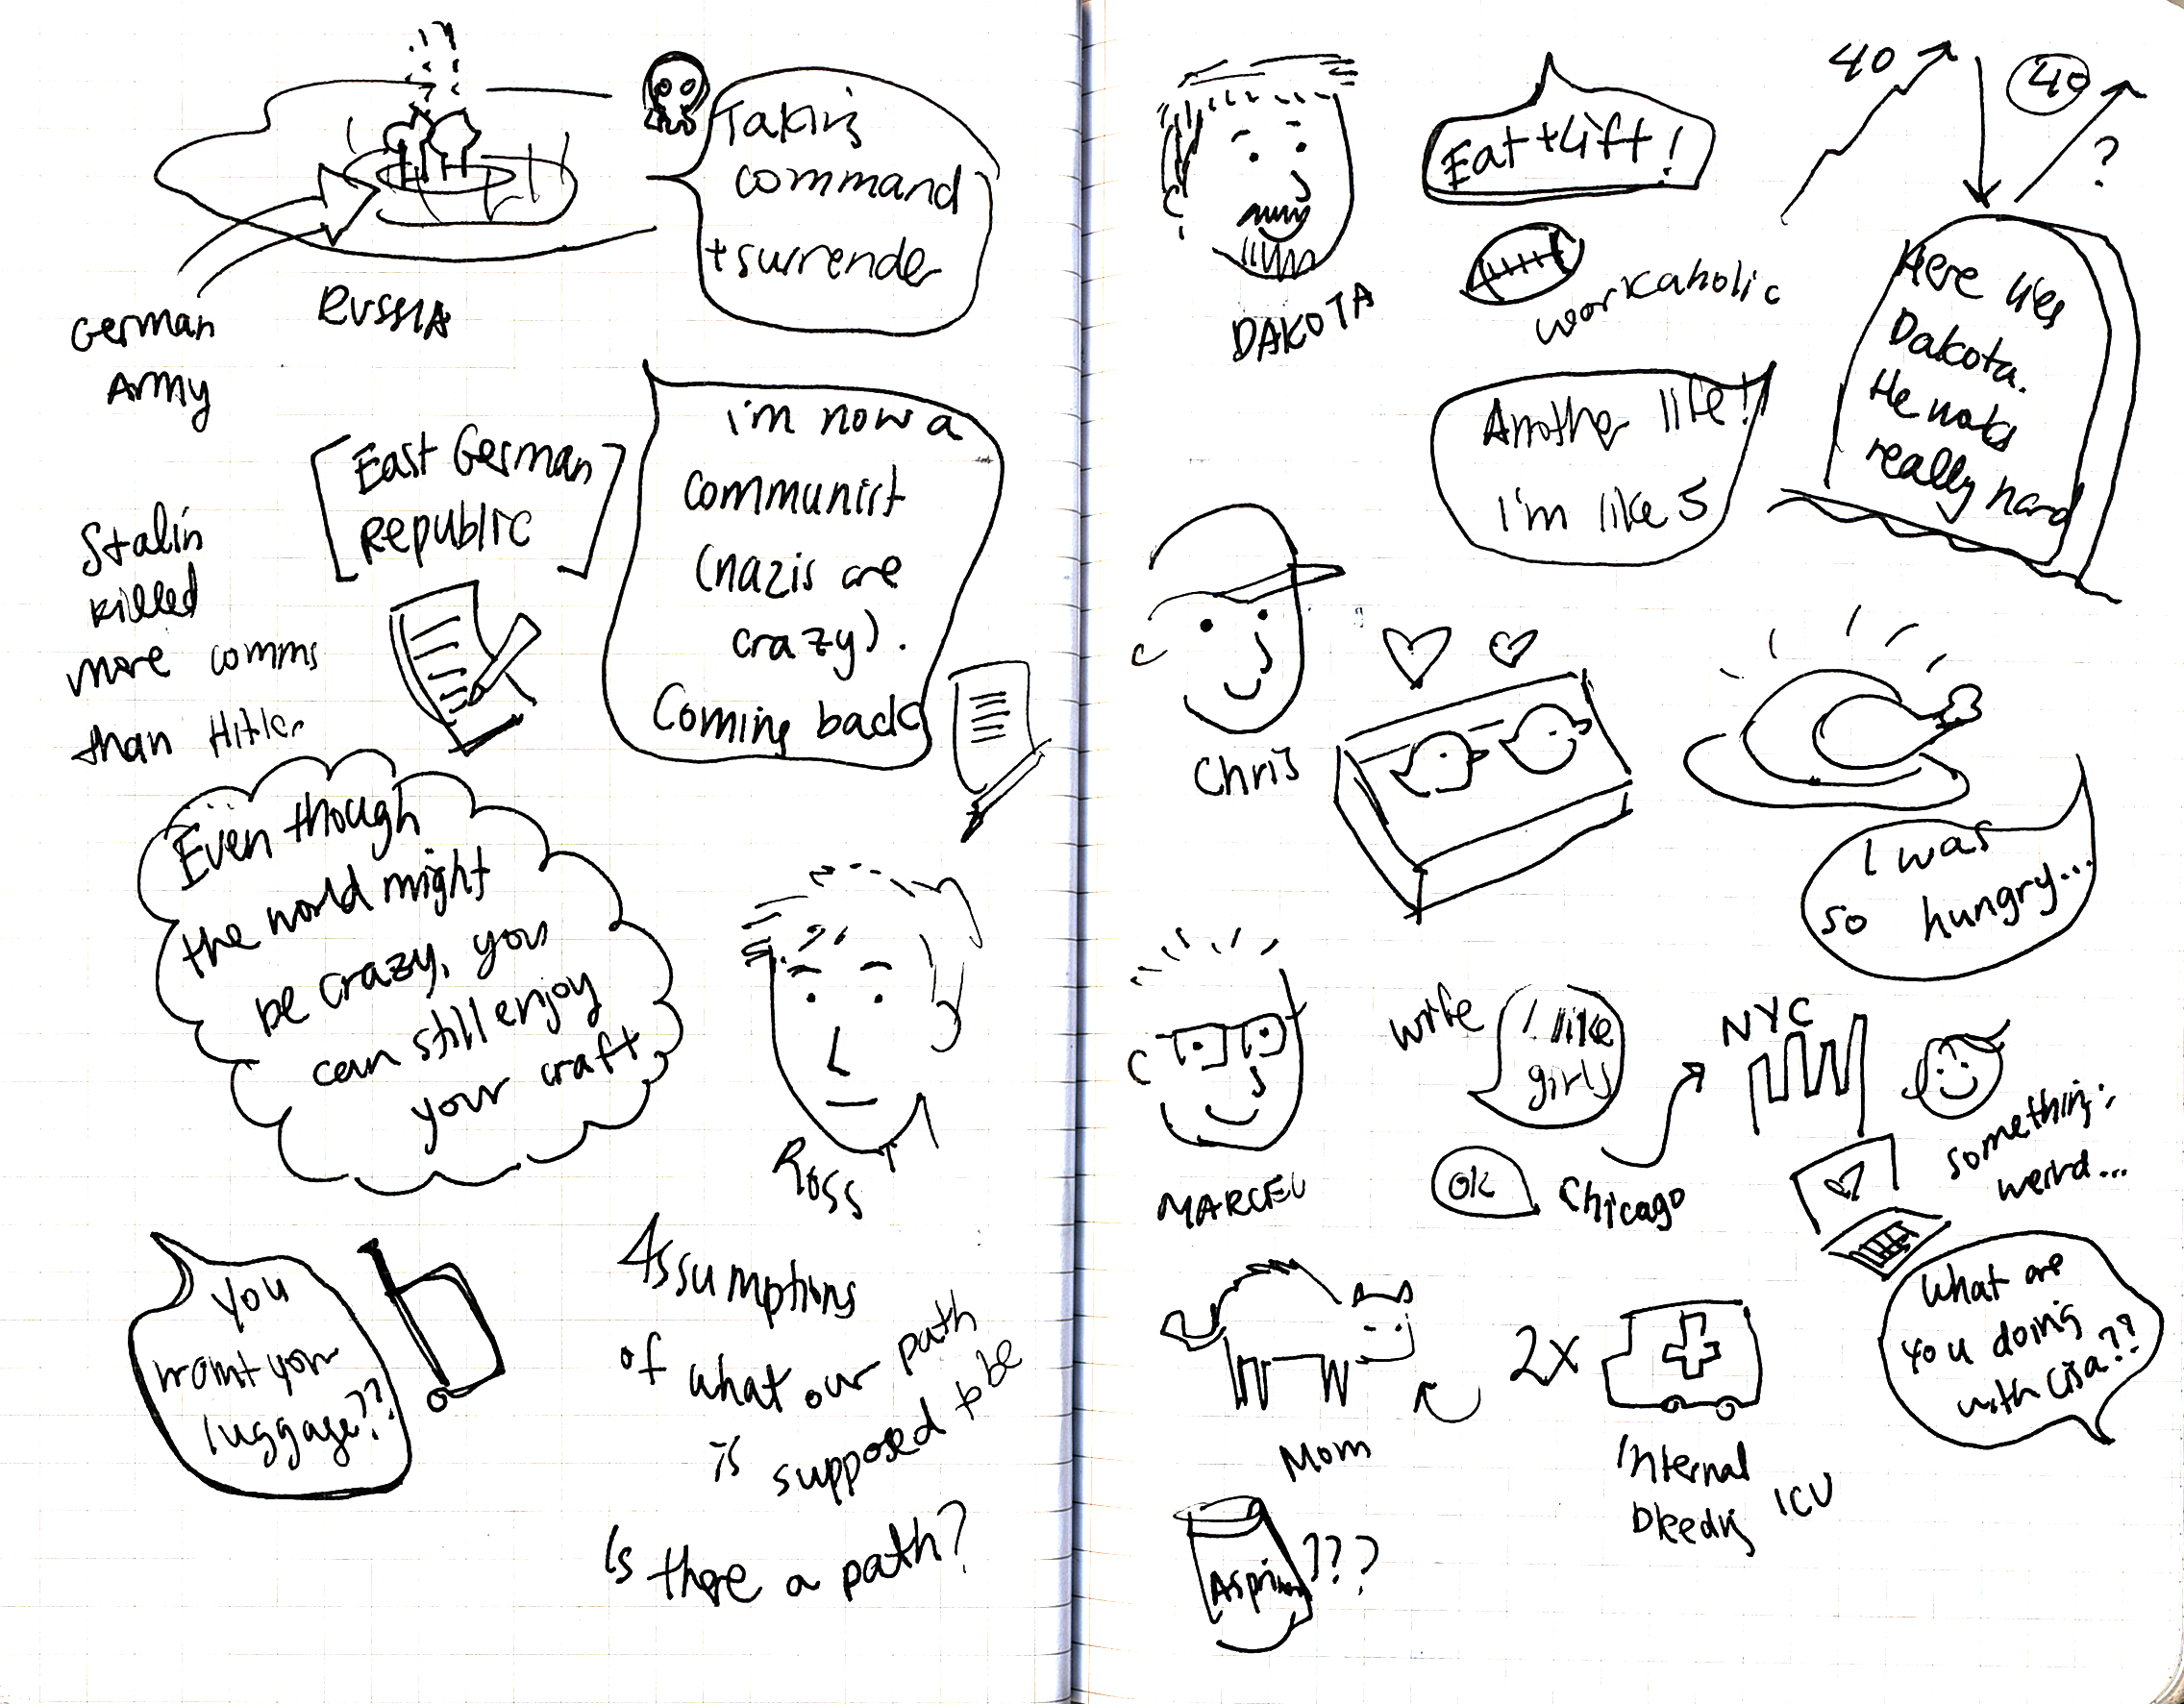 Taking
command
+ surrender
German
Army
RUSSIA
East German
Republic
i'm now a
communist
(nazis are
crazy).
Coming back
Stalin
killed
more comms
than Hitler
Even though
the world might
be crazy, you
can still enjoy
your craft
Ross
you
want your
luggage??
Assumptions
of what our path
is supposed to be
Is there a path?
DAKOTA
Eat + Lift!
workaholic
40
40
?
Here lies
Dakota.
He works
really hard
Another life!
I'm like 5
Chris
I was
so hungry...
MARCEL
wife
I like
girls
OK
Chicago
NYC
something's
weird...
What are
you doing
with Lisa??
Mom
2x
Internal
Bleeding
ICU
Aspirin
???